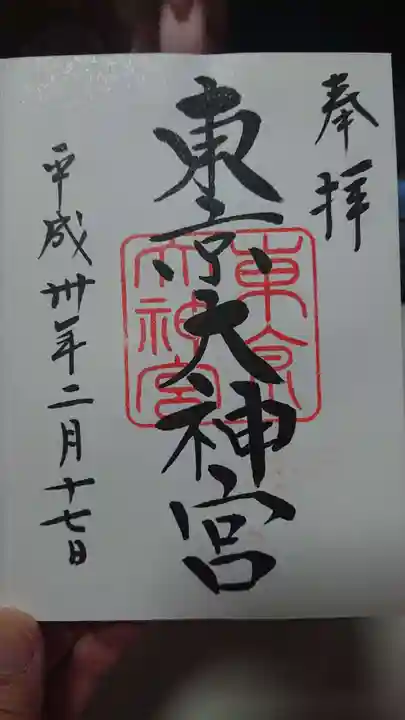 奉拝
東京大神宮
東京大神宮
平成卅年二月十七日